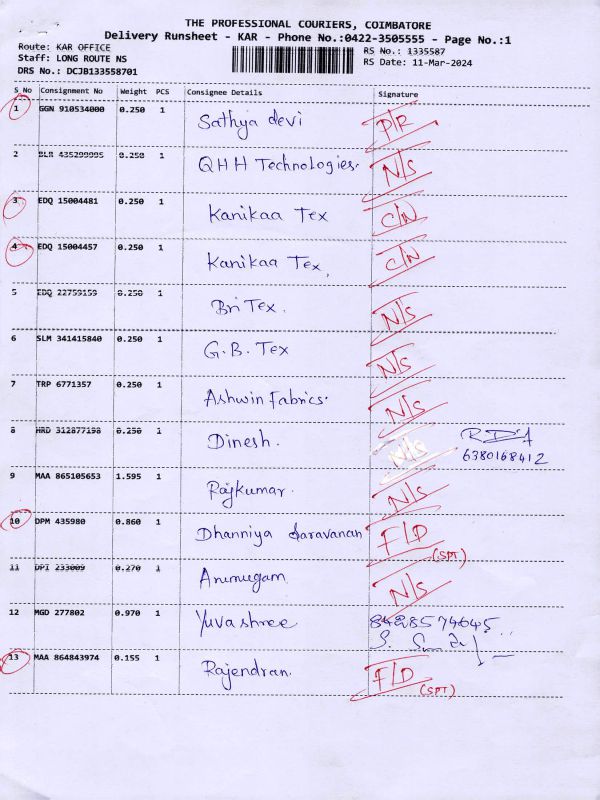 THE PROFESSIONAL COURIERS, COIMBATORE
Delivery Runsheet - KAR - Phone No.:0422-3505555 - Page No.:1
Route: KAR OFFICE
RS No.: 1335587
Staff: LONG ROUTE NS
RS Date: 11-Mar-2024
DRS No.: DCJB133558701
S No Consignment No Weight PCS Consignee Details Signature
1 GGN 910534000 0.250 1 Sathya devi P/R
2 BLR 435299995 0.250 1 QHH Technologies. N/S
3 EDQ 15004481 0.250 1 Kanikaa Tex C/N
4 EDQ 15004457 0.250 1 Kanikaa Tex, C/N
5 EDQ 22759159 0.250 1 Bri Tex. N/S
6 SLM 341415840 0.250 1 G.B. Tex N/S
7 TRP 6771357 0.250 1 Ashwin Fabrics. N/S
8 HRD 312877198 0.250 1 Dinesh. N/S
6380168412
9 MAA 865105653 1.595 1 Rajkumar. N/S
10 DPM 435980 0.860 1 Dhanniya Saravanan F/D
(SPT)
11 DPI 233009 0.270 1 Arumugam N/S
12 MGD 277802 0.970 1 Yuvashree 8428574645
13 MAA 864843974 0.155 1 Rajendran. F/D
(SPT)